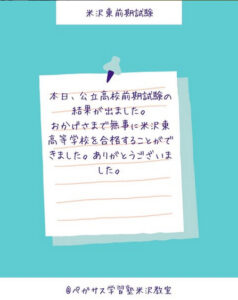 米沢東前期試験
本日、公立高校前期試験の
結果が出ました。
おかげさまで無事に米沢東
高等学校を合格することがで
きました。ありがとうございま
した。
@ペガサス学習塾米沢教室